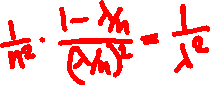 1/n² · (1 - λ/n)/(λ/n)² = 1/λ²